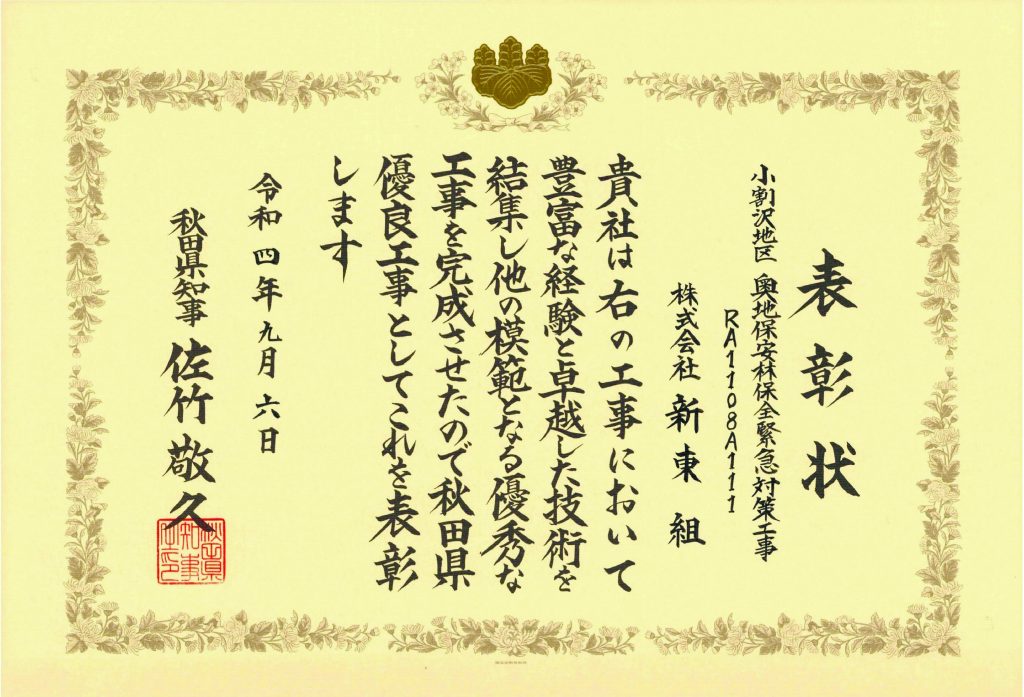 表彰状
小割沢地区 奥地保安林保全緊急対策工事
RA1108A111
株式会社 新東組
貴社は右の工事において
豊富な経験と卓越した技術を
結集し他の模範となる優秀な
工事を完成させたので秋田県
優良工事としてこれを表彰
します
令和四年九月六日
秋田県知事 佐竹敬久